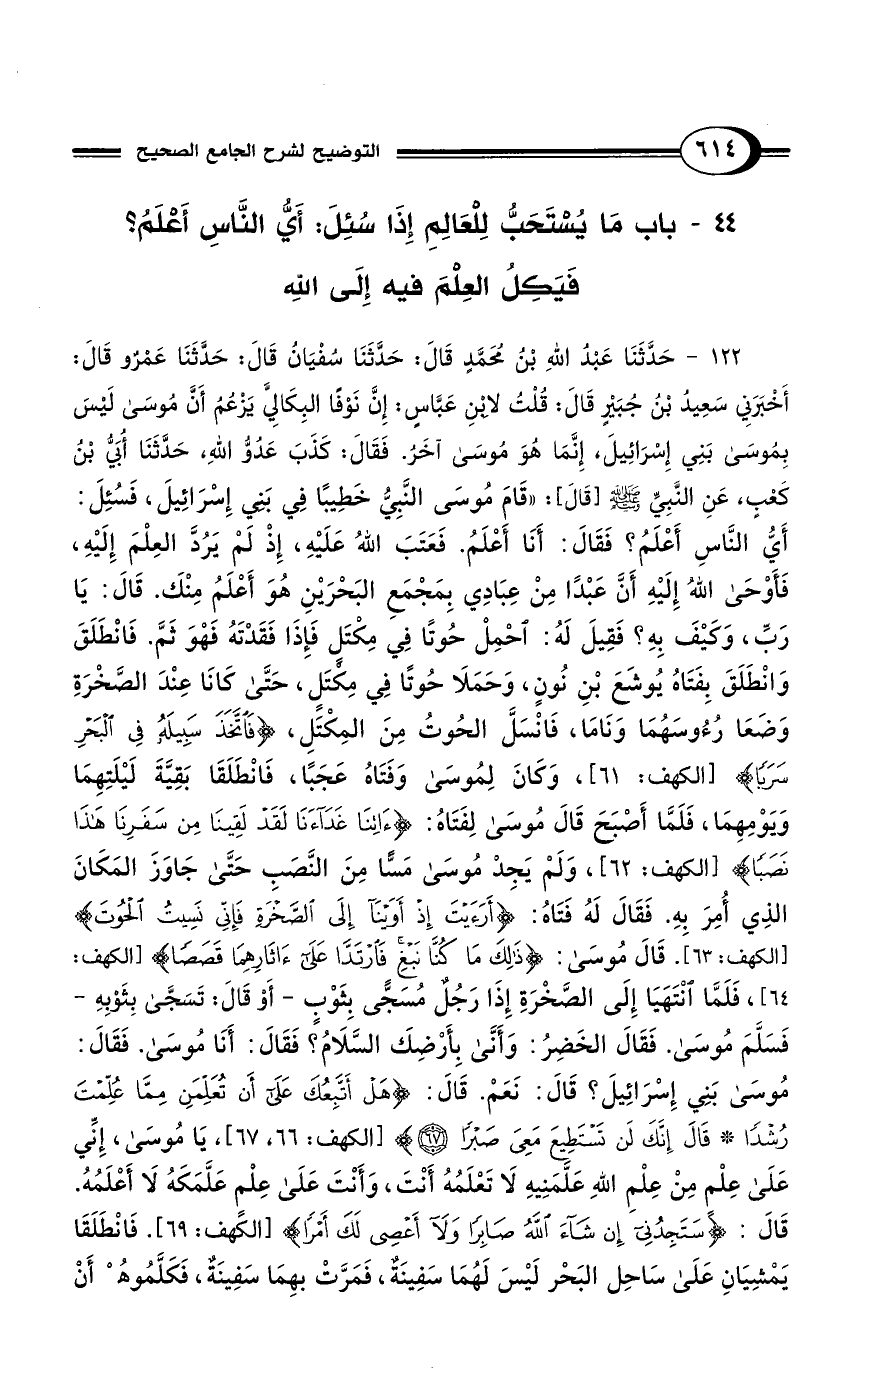 ٦١٤ التوضيح لشرح الجامع الصحيح
٤٤ - باب مَا يُسْتَحَبُّ لِلْعَالِمِ إِذَا سُئِلَ: أَيُّ النَّاسِ أَعْلَمُ؟
فَيَكِلُ العِلْمَ فيه إِلَى اللهِ
١٢٢ - حَدَّثَنَا عَبْدُ اللهِ بْنُ مُحَمَّدٍ قَالَ: حَدَّثَنَا سُفْيَانُ قَالَ: حَدَّثَنَا عَمْرٌو قَالَ:
أَخْبَرَنِي سَعِيدُ بْنُ جُبَيْرٍ قَالَ: قُلْتُ لابْنِ عَبَّاسٍ: إِنَّ نَوْفًا البِكَالِيَّ يَزْعُمُ أَنَّ مُوسَىٰ لَيْسَ
بِمُوسَىٰ بَنِي إِسْرَائِيلَ، إِنَّمَا هُوَ مُوسَىٰ آخَرُ. فَقَالَ: كَذَبَ عَدُوُّ اللهِ، حَدَّثَنَا أُبَيُّ بْنُ
كَعْبٍ، عَنِ النَّبِيِّ ﷺ [قَالَ]: «قَامَ مُوسَى النَّبِيُّ خَطِيبًا فِي بَنِي إِسْرَائِيلَ، فَسُئِلَ:
أَيُّ النَّاسِ أَعْلَمُ؟ فَقَالَ: أَنَا أَعْلَمُ. فَعَتَبَ اللهُ عَلَيْهِ، إِذْ لَمْ يَرُدَّ العِلْمَ إِلَيْهِ،
فَأَوْحَى اللهُ إِلَيْهِ أَنَّ عَبْدًا مِنْ عِبَادِي بِمَجْمَعِ البَحْرَيْنِ هُوَ أَعْلَمُ مِنْكَ. قَالَ: يَا
رَبِّ، وَكَيْفَ بِهِ؟ فَقِيلَ لَهُ: ٱحْمِلْ حُوتًا فِي مِكْتَلٍ فَإِذَا فَقَدْتَهُ فَهْوَ ثَمَّ. فَانْطَلَقَ
وَانْطَلَقَ بِفَتَاهُ يُوشَعَ بْنِ نُونٍ، وَحَمَلَا حُوتًا فِي مِكْتَلٍ، حَتَّىٰ كَانَا عِنْدَ الصَّخْرَةِ
وَضَعَا رُءُوسَهُمَا وَنَامَا، فَانْسَلَّ الحُوتُ مِنَ المِكْتَلِ، ﴿فَاتَّخَذَ سَبِيلَهُ فِي الْبَحْرِ
سَرَبًا﴾ [الكهف: ٦١]، وَكَانَ لِمُوسَىٰ وَفَتَاهُ عَجَبًا، فَانْطَلَقَا بَقِيَّةَ لَيْلَتِهِمَا
وَيَوْمِهِمَا، فَلَمَّا أَصْبَحَ قَالَ مُوسَىٰ لِفَتَاهُ: ﴿ءَاتِنَا غَدَآءَنَا لَقَدْ لَقِينَا مِن سَفَرِنَا هَٰذَا
نَصَبًا﴾ [الكهف: ٦٢]، وَلَمْ يَجِدْ مُوسَىٰ مَسًّا مِنَ النَّصَبِ حَتَّىٰ جَاوَزَ المَكَانَ
الذِي أُمِرَ بِهِ. فَقَالَ لَهُ فَتَاهُ: ﴿أَرَءَيْتَ إِذْ أَوَيْنَآ إِلَى ٱلصَّخْرَةِ فَإِنِّي نَسِيتُ ٱلْحُوتَ﴾
[الكهف: ٦٣]. قَالَ مُوسَىٰ: ﴿ذَٰلِكَ مَا كُنَّا نَبْغِ فَارْتَدَّا عَلَىٰٓ ءَاثَارِهِمَا قَصَصًا﴾ [الكهف:
٦٤]، فَلَمَّا ٱنْتَهَيَا إِلَى الصَّخْرَةِ إِذَا رَجُلٌ مُسَجًّى بِثَوْبٍ - أَوْ قَالَ: تَسَجَّىٰ بِثَوْبِهِ -
فَسَلَّمَ مُوسَىٰ. فَقَالَ الخَضِرُ: وَأَنَّىٰ بِأَرْضِكَ السَّلَامُ؟ فَقَالَ: أَنَا مُوسَىٰ. فَقَالَ:
مُوسَىٰ بَنِي إِسْرَائِيلَ؟ قَالَ: نَعَمْ. قَالَ: ﴿هَلْ أَتَّبِعُكَ عَلَىٰٓ أَن تُعَلِّمَنِ مِمَّا عُلِّمْتَ
رُشْدًا * قَالَ إِنَّكَ لَن تَسْتَطِيعَ مَعِىَ صَبْرًا ٦٧﴾ [الكهف: ٦٦، ٦٧]، يَا مُوسَىٰ، إِنِّي
عَلَىٰ عِلْمٍ مِنْ عِلْمِ اللهِ عَلَّمَنِيهِ لَا تَعْلَمُهُ أَنْتَ، وَأَنْتَ عَلَىٰ عِلْمٍ عَلَّمَكَهُ لَا أَعْلَمُهُ.
قَالَ: ﴿سَتَجِدُنِىٓ إِن شَآءَ ٱللَّهُ صَابِرًا وَلَآ أَعْصِى لَكَ أَمْرًا﴾ [الكهف: ٦٩]. فَانْطَلَقَا
يَمْشِيَانِ عَلَىٰ سَاحِلِ البَحْرِ لَيْسَ لَهُمَا سَفِينَةٌ، فَمَرَّتْ بِهِمَا سَفِينَةٌ، فَكَلَّمُوهُمْ أَنْ